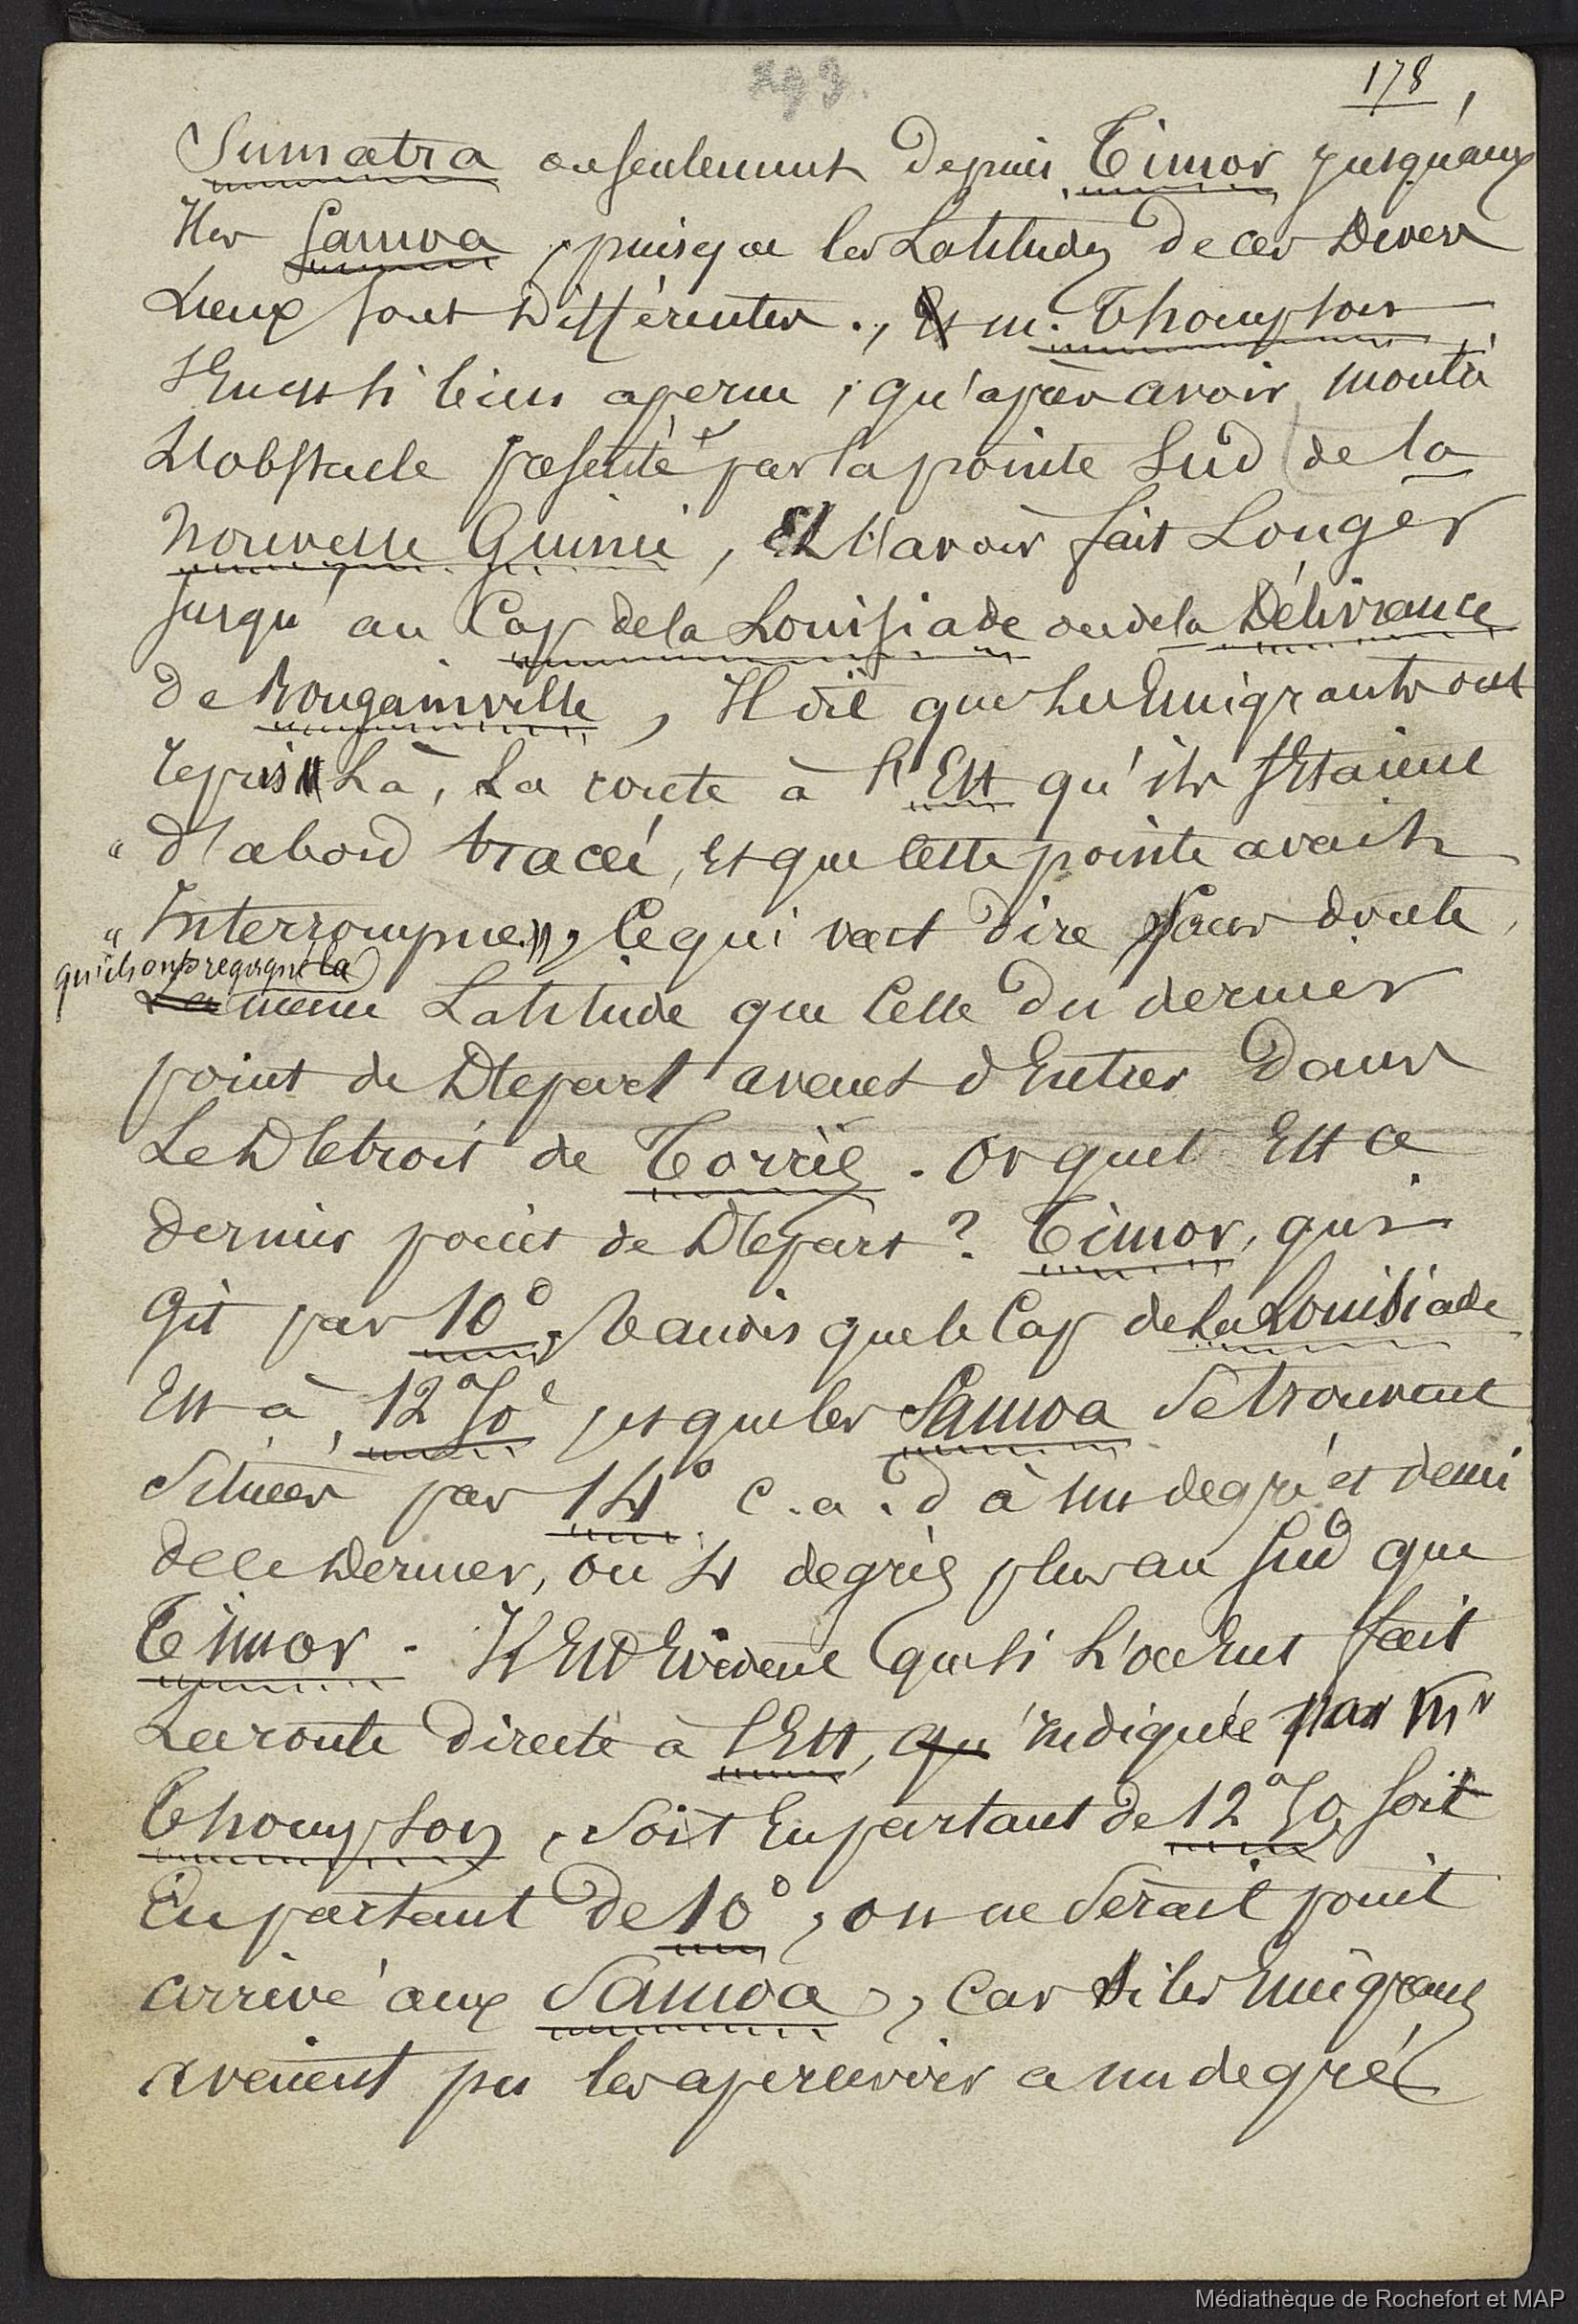 293.
178
Sumatra ou seulement depuis Timor jusqu'aux
Iles Samoa, puisque les Latitudes de ces Divers
Lieux sont Différentes., Et m. Thompson
s'En est si bien aperçu, qu'après avoir montré
L'obstacle présenté par la pointe Sud de la
Nouvelle Guinée, Et l'avoir fait Longer
jusqu'au Cap de la Louisiade ou de la Délivrance
de Bougainville, Il dit que les Emigrants ont
repris " Là, La route à l'Est qu'ils s'Etaient
" d'abord tracée, Et que cette pointe avait
" Interrompue.", Ce qui veut dire sans doute,
qu'ils ont regagné la
La même Latitude que Celle du dernier
point de Départ avant d'Entrer Dans
Le Détroit de Torrès. Or quel Est ce
dernier point de Départ? Timor, qui
Gît par 10°, Tandis que le Cap de La Louisiade
Est à 12°50', et que les Samoa se trouvent
Situées par 14° c.a.d à un degré et demi
de ce Dernier, ou 4 degrés plus au Sud que
Timor. Il Est Evident que si L'on Eut fait
La route directe à l'Est, qu' Indiquée par Mr
Thompson, soit En partant de 12°50, soit
En partant de 10°, on ne serait point
arrivé aux Samoa, Car si les Emigrans
avaient pu les apercevoir a un degré
Médiathèque de Rochefort et MAP